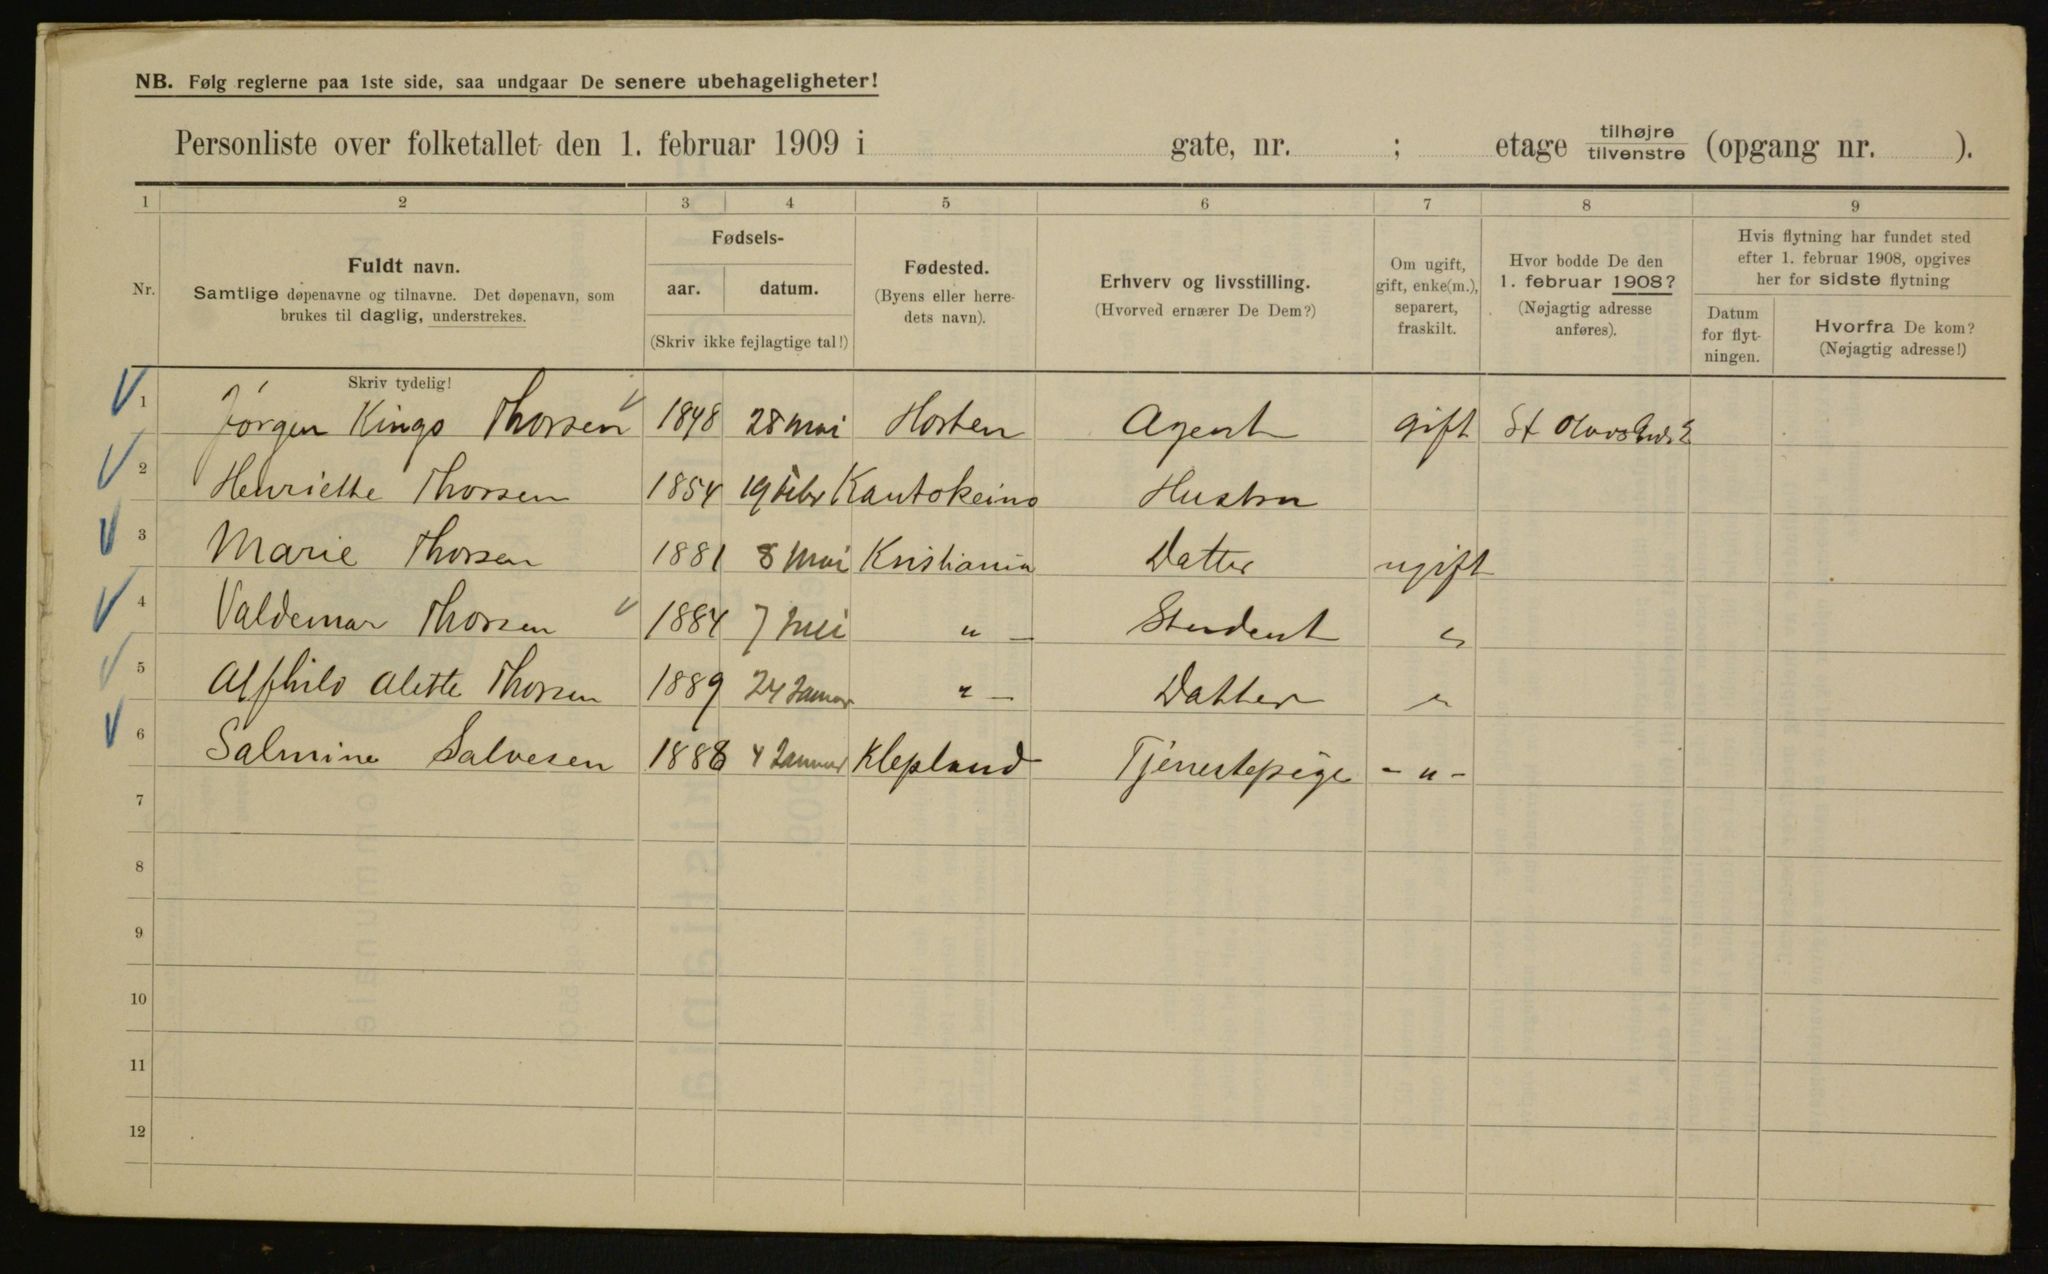 NB. Følg reglerne paa 1ste side, saa undgaar De senere ubehageligheter!
Personliste over folketallet den 1. februar 1909 i gate, nr. ; etage tilhøjre/tilvenstre (opgang nr. ).
1 2 3 4 5 6 7 8 9
Nr.
Fuldt navn.
Samtlige døpenavne og tilnavne. Det døpenavn, som
brukes til daglig, understrekes.
Skriv tydelig!
Fødsels-
aar. datum.
(Skriv ikke fejlagtige tal!)
Fødested.
(Byens eller herre-
dets navn).
Erhverv og livsstilling.
(Hvorved ernærer De Dem?)
Om ugift,
gift, enke(m.),
separert,
fraskilt.
Hvor bodde De den
1. februar 1908?
(Nøjagtig adresse
anføres).
Hvis flytning har fundet sted
efter 1. februar 1908, opgives
her for sidste flytning
Datum
for flyt-
ningen.
Hvorfra De kom?
(Nøjagtig adresse!)
1 Jørgen Kingo Thorsen 1848 28 Mai Horten Agent gift St Olavs
2 Henriette Thorsen 1854 19 Febr Kautokeino Hustru
3 Marie Thorsen 1881 8 Mai Kristiania Datter ugift
4 Valdemar Thorsen 1884 7 " - Student "
5 Alfhild Alette Thorsen 1889 24 Januar " - Datter "
6 Salmine Salvesen 1888 4 Januar Klepland Tjenestepige - " -
7
8
9
10
11
12